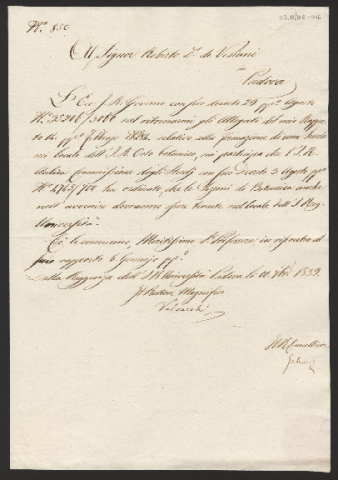 N.° 850
Al Signor Roberto D.r de Visiani
Padova
L'Ecc. I. R. Governo con suo decreto 29 pp.° Agosto
N.° 35206/3066 nel ritornarmi gli Allegati del mio Rapporto
relativo alla formazione di una Scuola
nei locali dell'I. R. Orto botanico, mi partecipa che l'I. R.
Aulica Commissione degli Studj con suo Decreto 3 Agosto pp.°
N.° ha ordinato, che le Lezioni di Botanica anche
nell'avvenire dovranno esser tenute nel locale dell'I. Reg.
Università.
Ciò le comunico, Chiarissimo S.r Professore, in riscontro al
suo rapporto 6 Gennajo pp.°
Dalla Reggenza dell'I. R. Università Padova li 10 7bre 1839.
Il Rettore Magnifico
Il R. Cancelliere